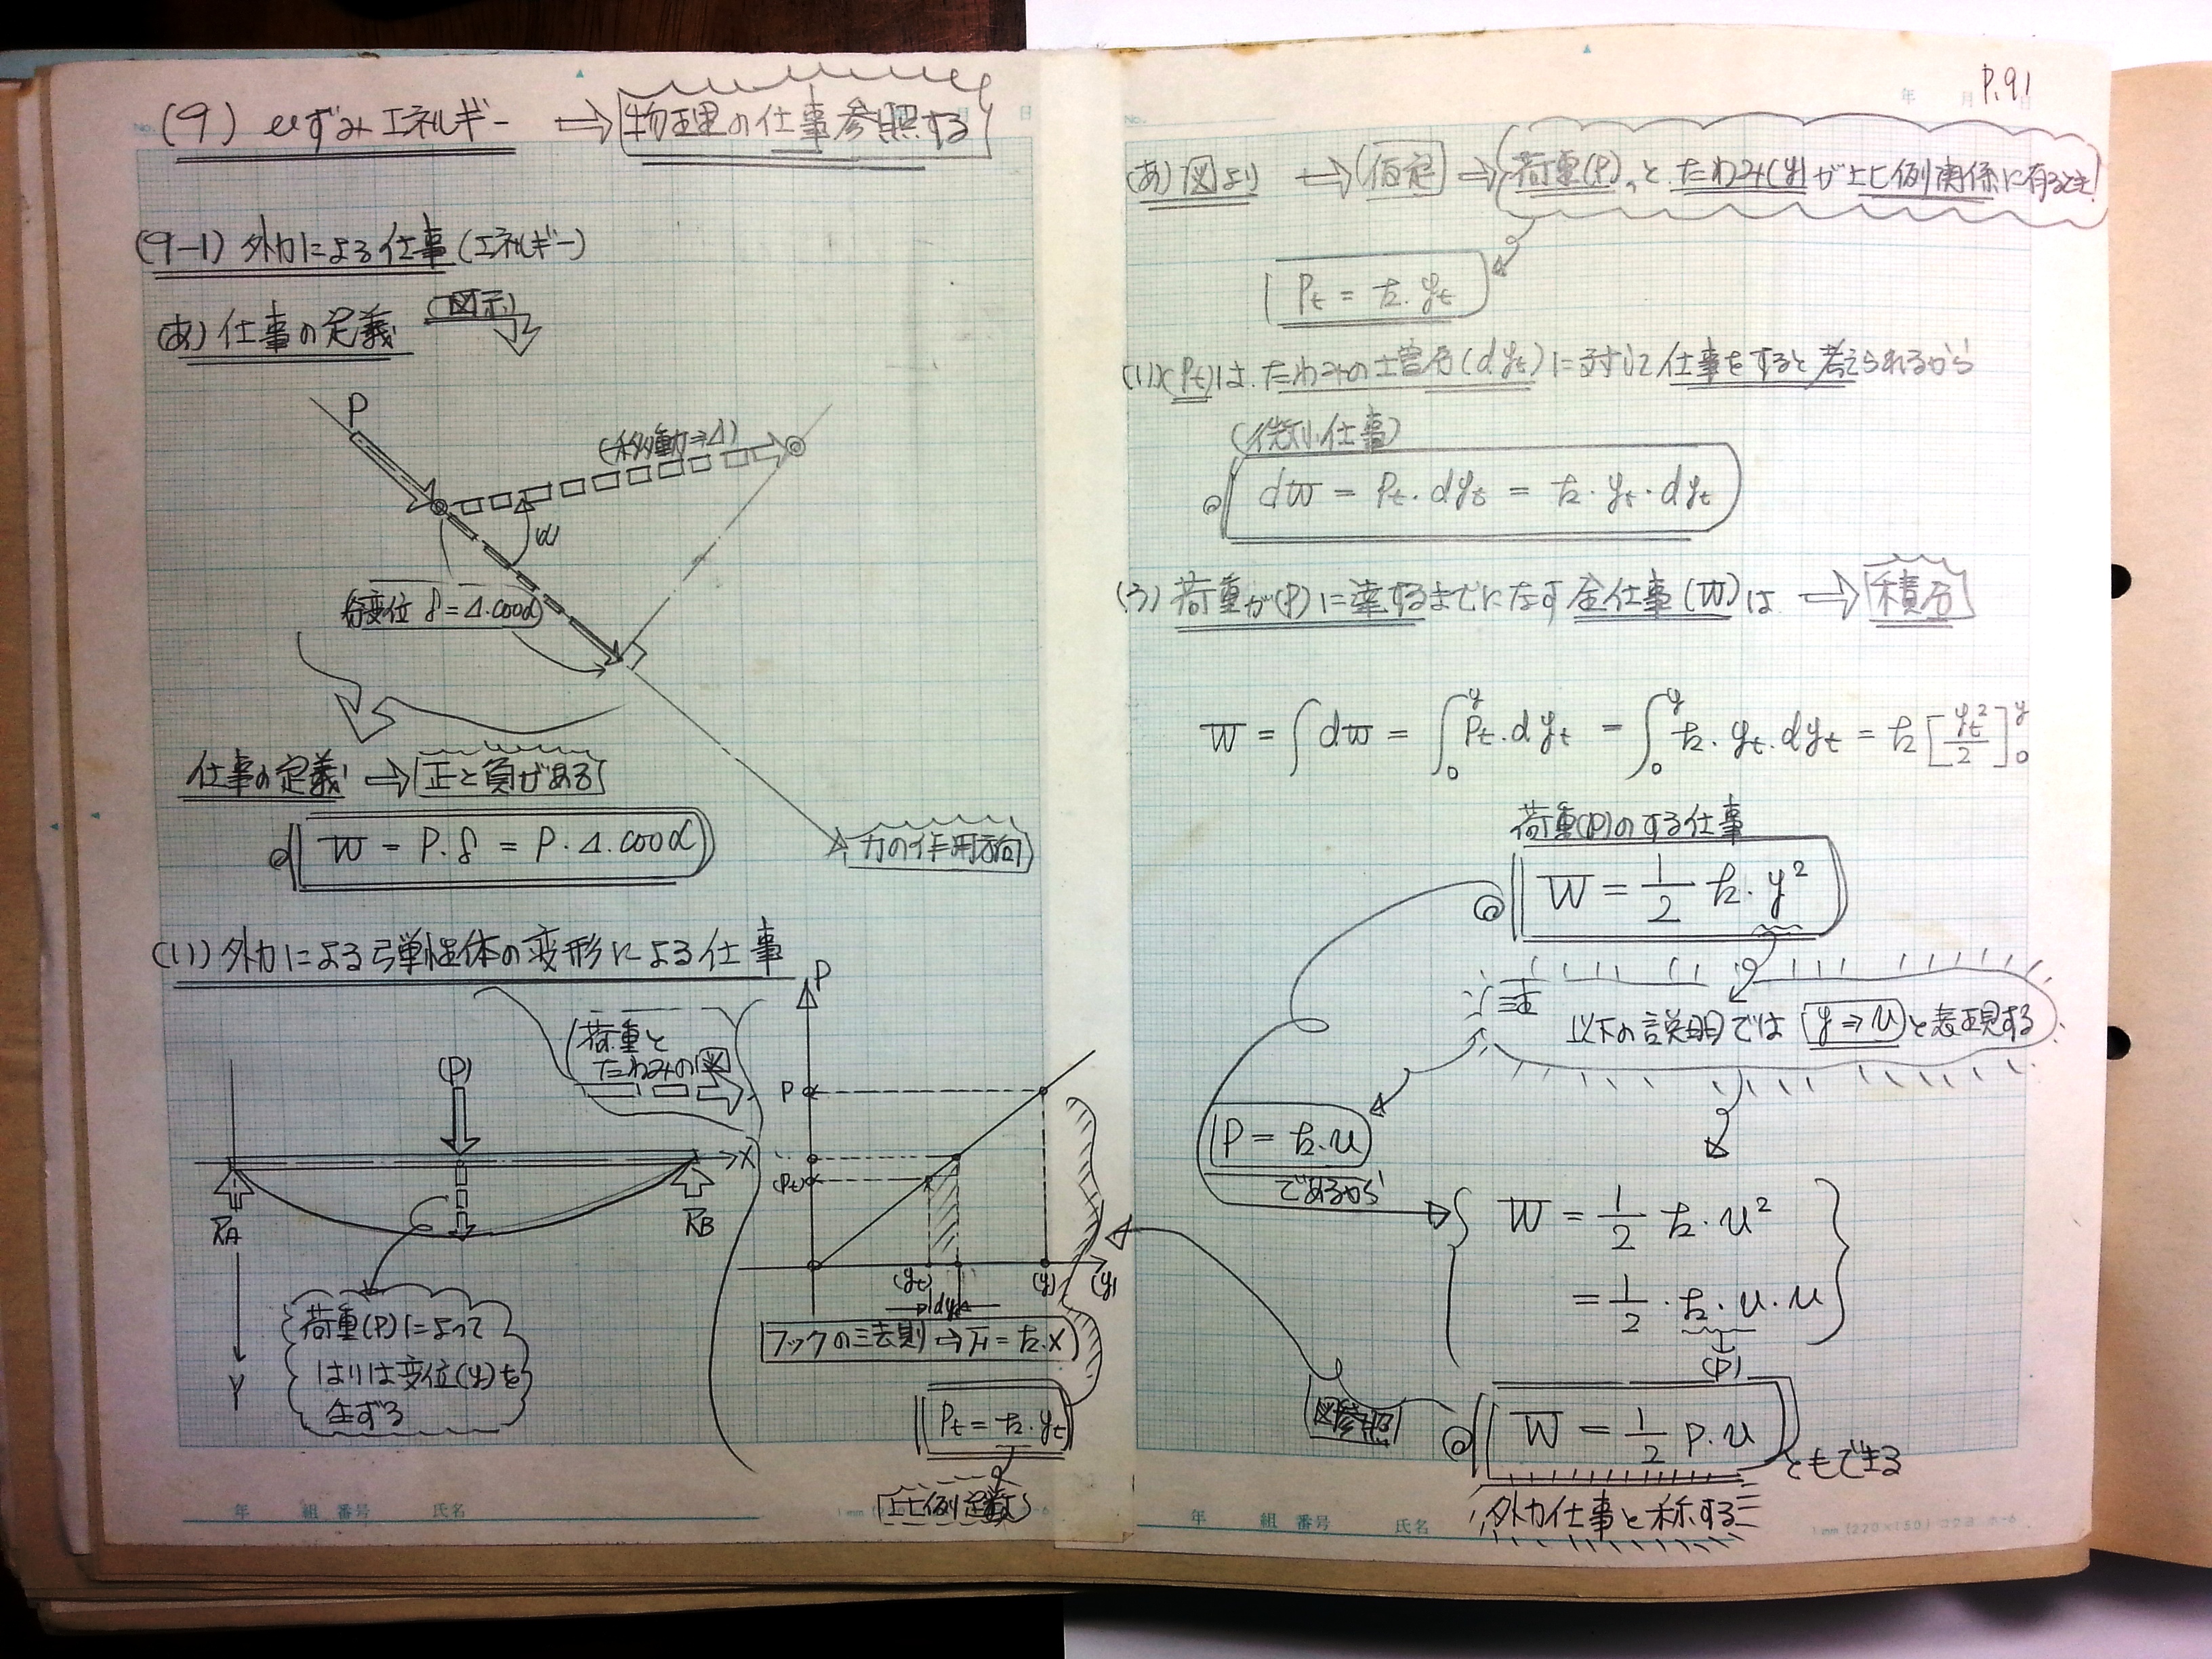 (9) ひずみエネルギー ⇒ 物理の仕事参照する
(9-1) 外力による仕事(エネルギー)
(あ) 仕事の定義 (図示)
P
(移動⇒Δ)
α
変位 δ=Δ.cosα
仕事の定義 ⇒ 正と負がある
W = P.δ = P.Δ.cosα
力の作用方向
(い) 外力による弾性体の変形による仕事
荷重と
たわみの図
(P)
X
RA
RB
Y
荷重(P)によって
はりは変位(y)を
生ずる
P
P
(Pt)
(yt)
dyt
(y)
(y)
フックの法則 → F=k.x
Pt=k.yt
比例定数
P.91
(あ) 図より ⇒ 仮定 ⇒ 荷重(P)、と たわみ(y)が比例関係に有るとき
Pt = k.yt
(い) (Pt)は、たわみの増分(dyt)に対して仕事をすると考えられるから
(微小仕事)
dw = Pt.dyt = k.yt.dyt
(う) 荷重が(P)に達するまでになす全仕事(W)は ⇒ 積分
W = ∫dw = ∫₀ʸ Pt.dyt = ∫₀ʸ k.yt.dyt = k[yt²/2]₀ʸ
荷重(P)のする仕事
W = 1/2 k.y²
注
以下の説明では (y⇒u)と表現する
P=k.u
であるから
W = 1/2 k.u²
= 1/2.k.u.u
(P)
図参照
W = 1/2 P.u
ともできる
外力仕事と称する
年 組 番号 氏名
年 組 番号 氏名